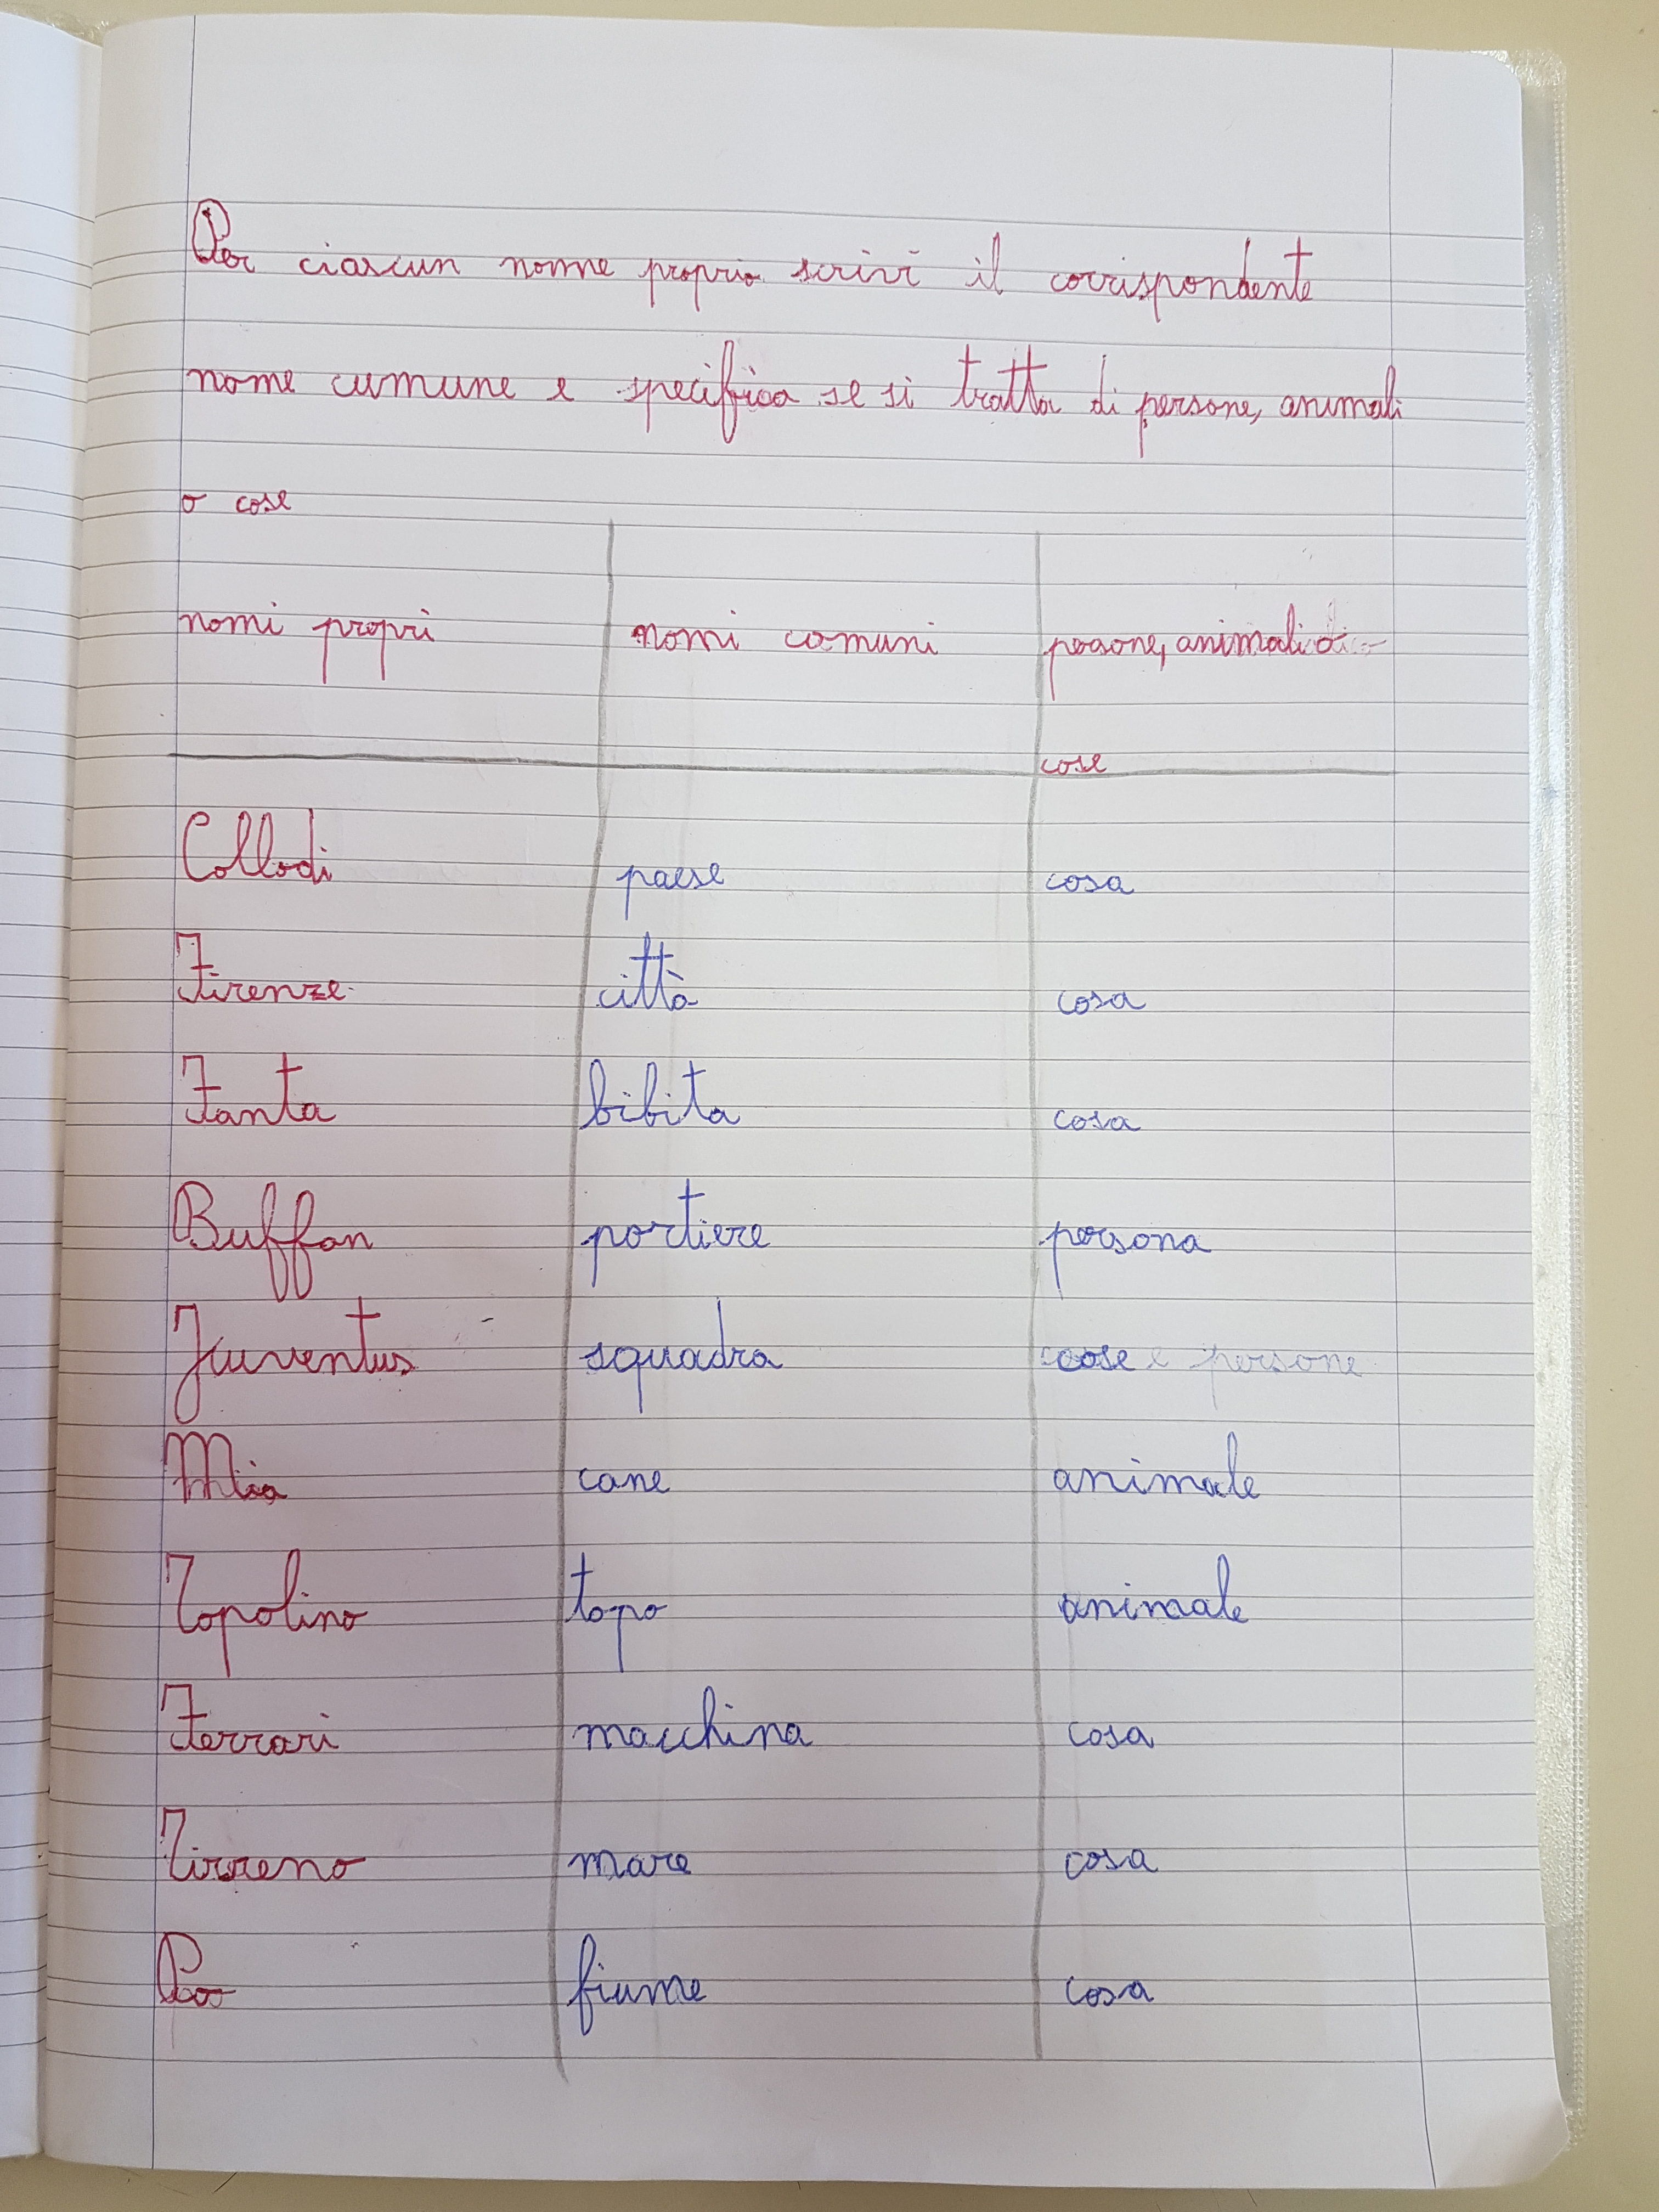 Per ciascun nome proprio scrivi il corrispondente
nome cumune e specifica se si tratta di persone, animali
o cose
nomi propri nomi comuni persone, animali o
cose
Collodi paese cosa
Firenze città cosa
Fanta bibita cosa
Buffon portiere persona
Juventus squadra cose e persone
Mia cane animale
Topolino topo animale
Ferrari macchina cosa
Tirreno mare cosa
Po fiume cosa